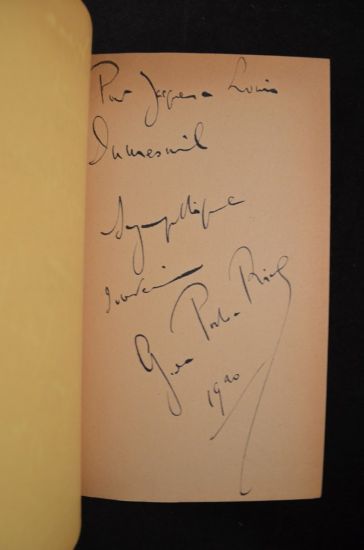 Pour Jacques & Louis
Dumesnil
Sympathique
Souvenir
Geo Porto-Riche
1920